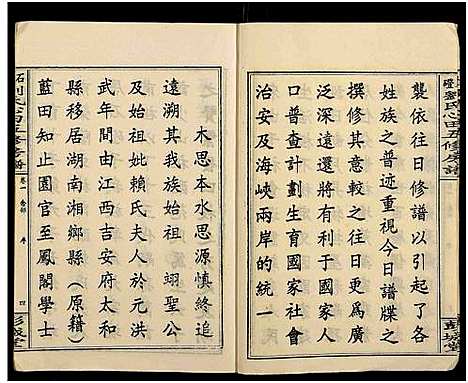 襲依往日修譜以引起了各
姓族之普迹重視今日譜牒之
撰修其意較之往日更爲廣
泛深遠還將引導個人家庭
人口普查計劃生育國家社會
治安及海峽兩岸的統一
木思本水思源慎終追
遠溯其我族始祖翊聖公
及始祖妣賴氏夫人於元洪
武年間由江西吉安府太和
縣移居湖南湘鄉縣（原籍）
藍田知止園官至鳳閣學士
卷一
序
四